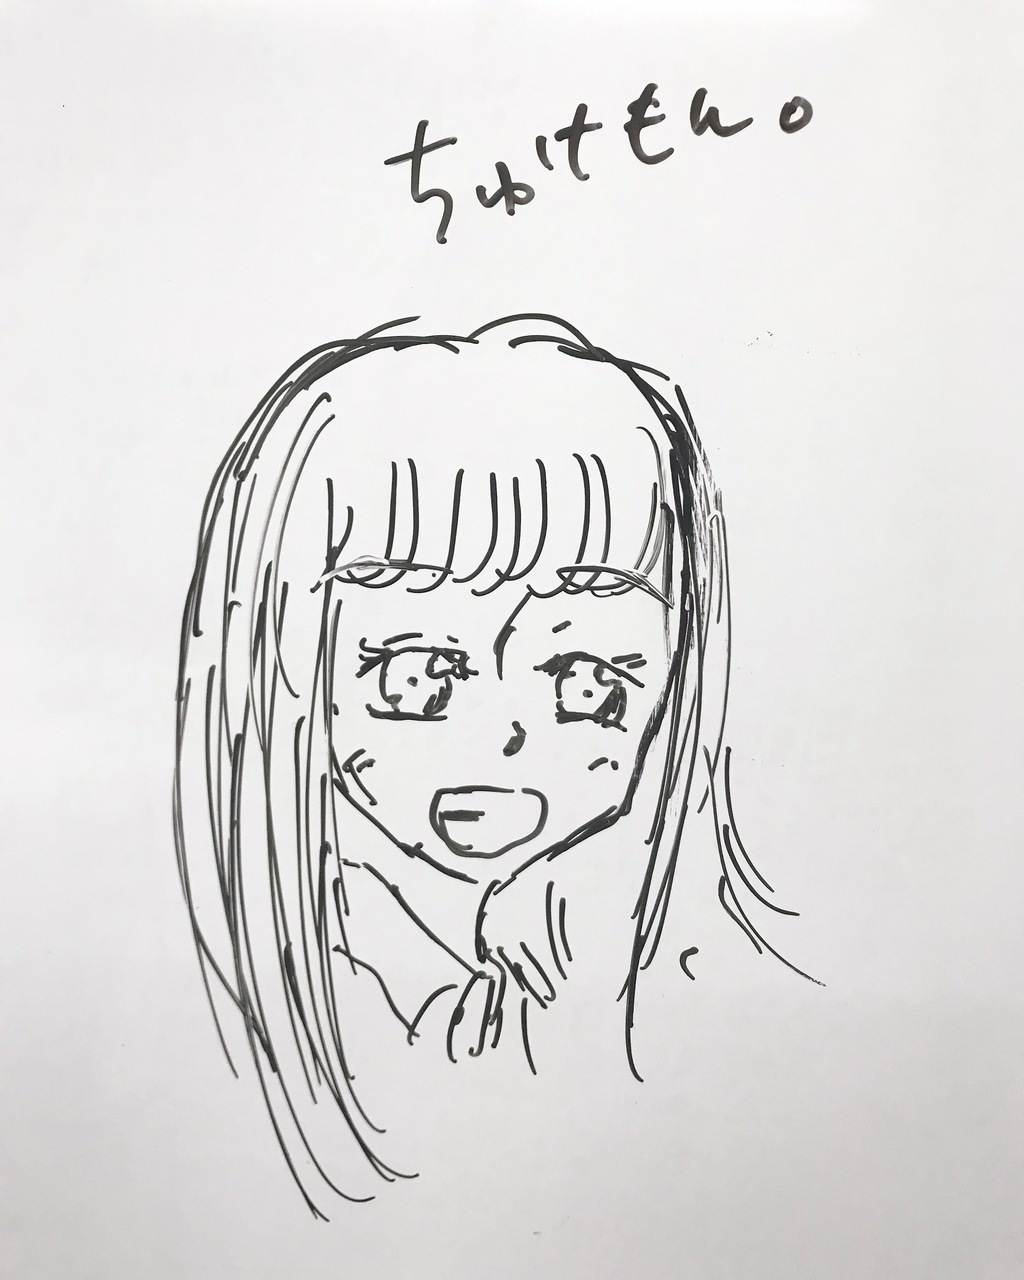 ちゅけもん。